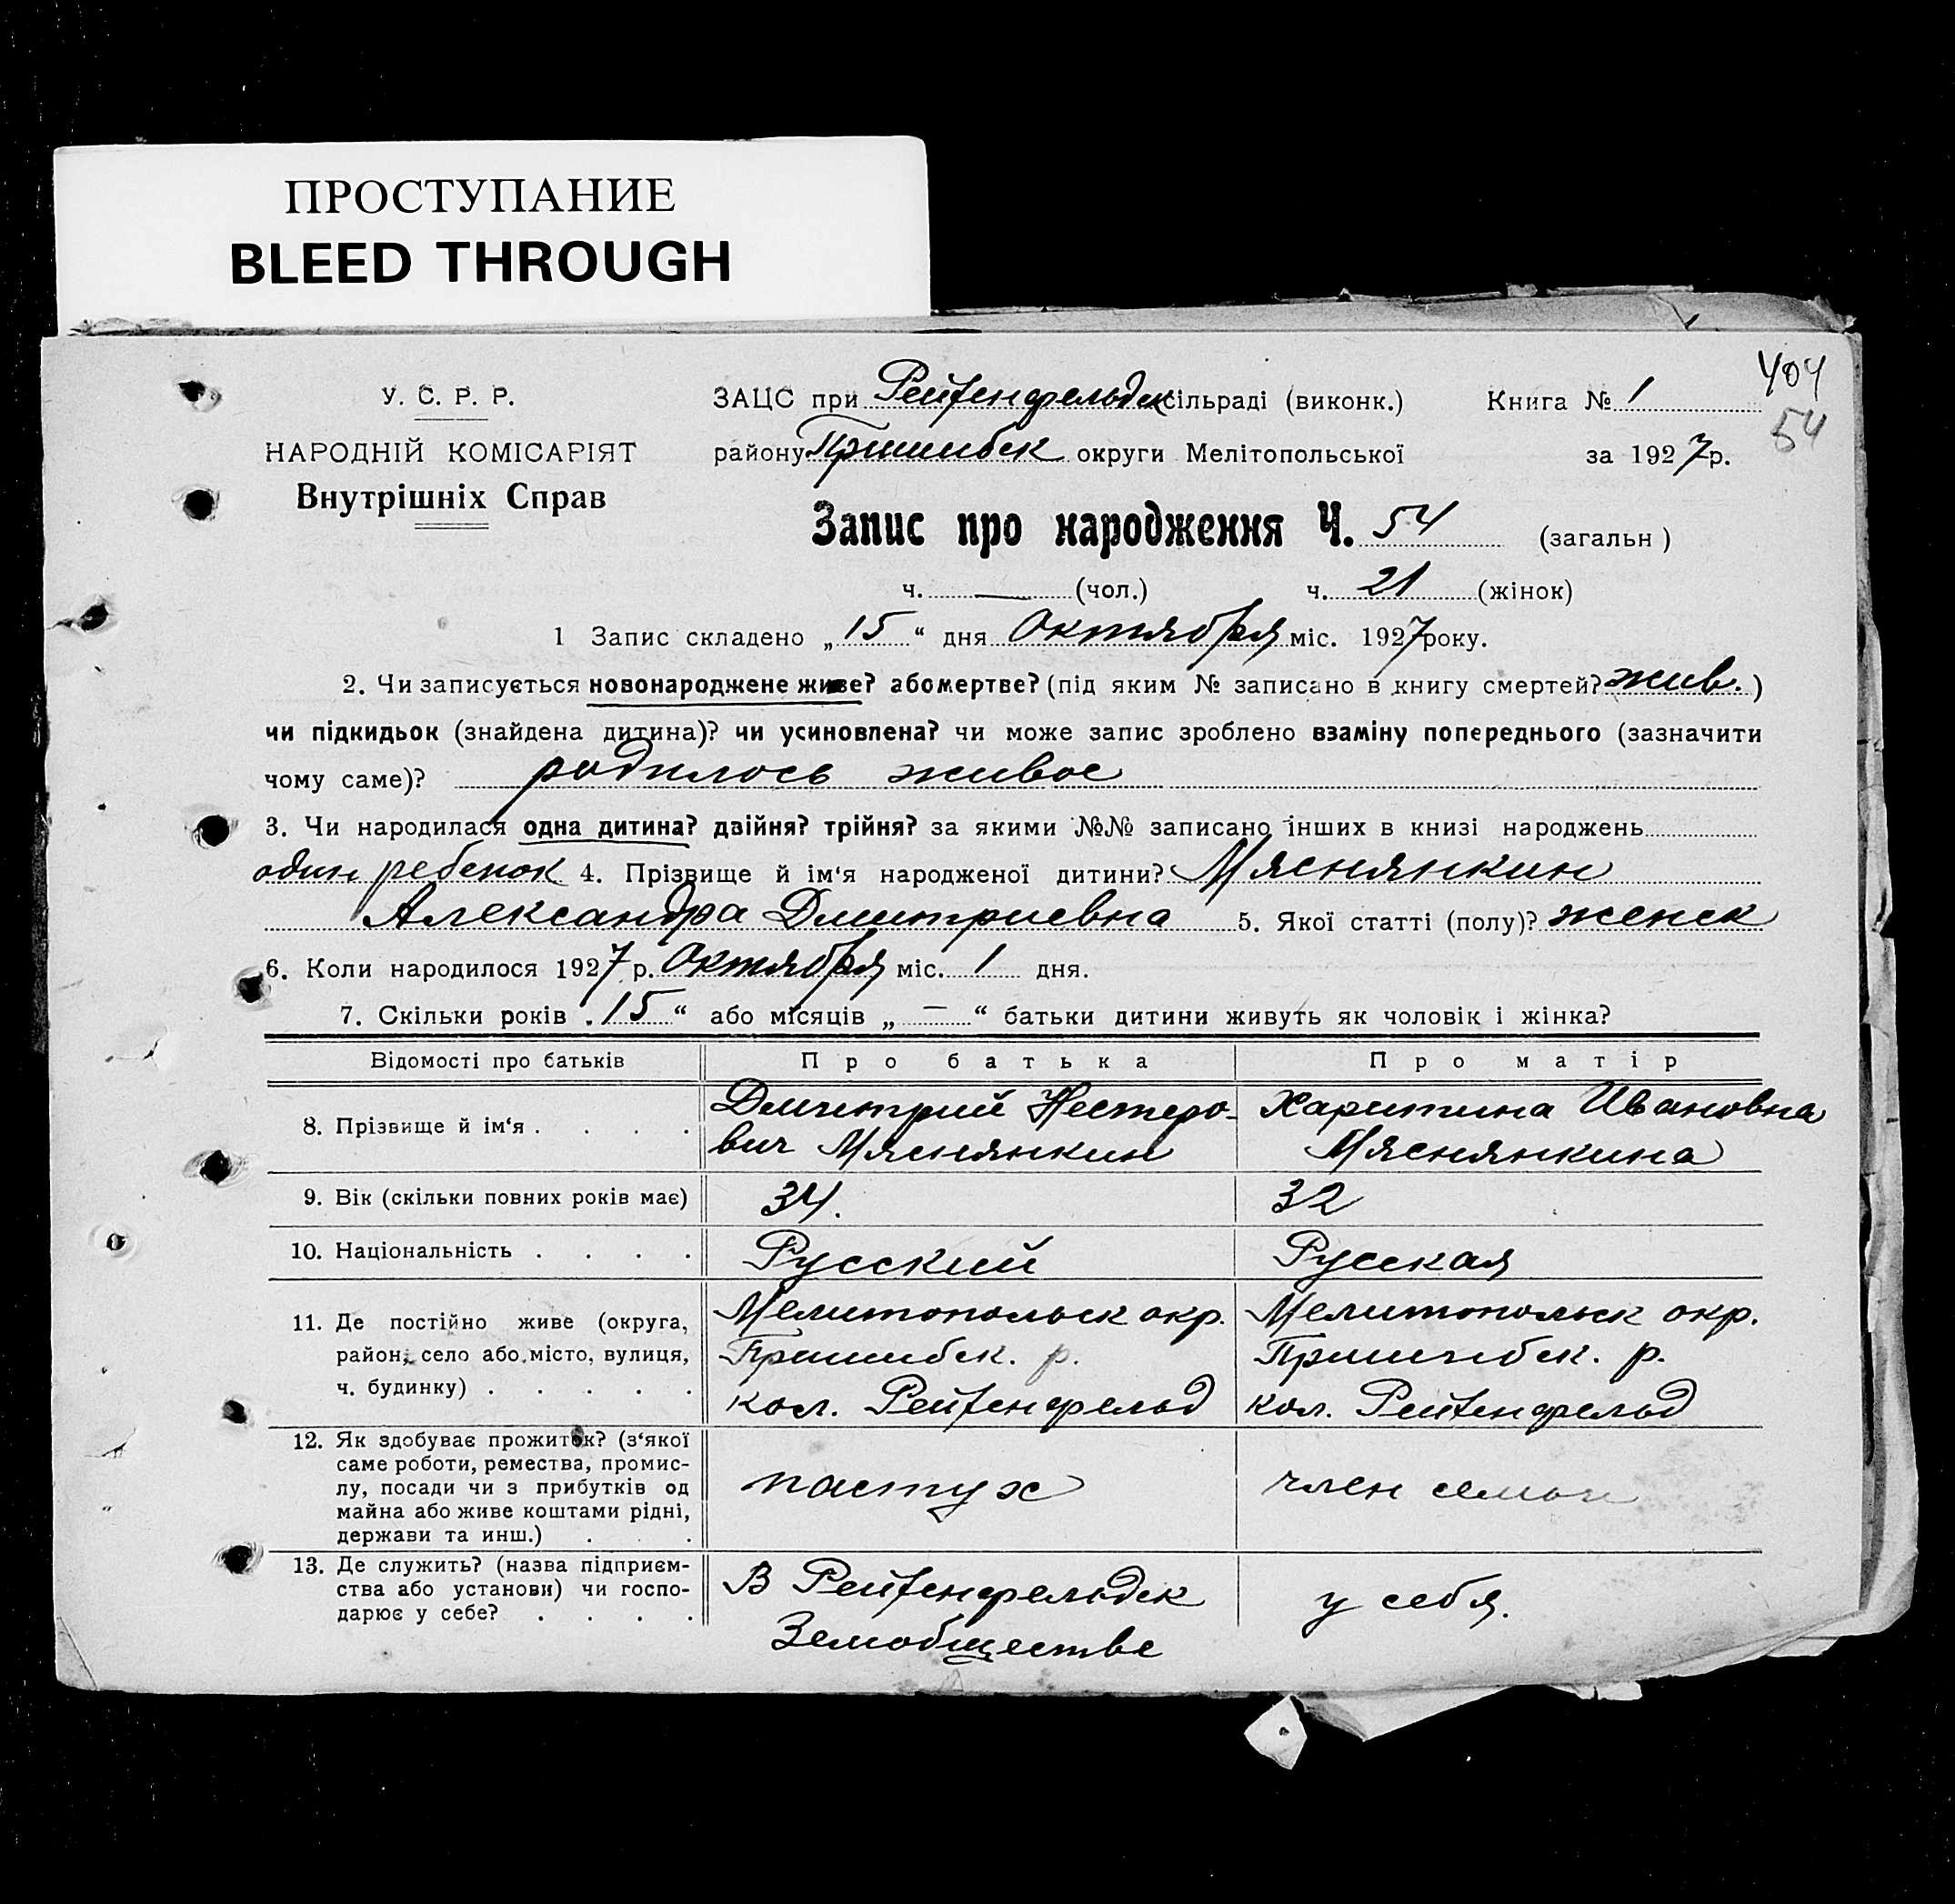 ПРОСТУПАНИЕ
BLEED THROUGH
404
54
У. С. Р. Р.
НАРОДНІЙ КОМІСАРІЯТ
Внутрішніх Справ
ЗАЦС при Рейхенфельдск сільраді (виконк.) Книга № 1
району Пришибск округи Мелітопольської за 1927 р.
Запис про народження Ч. 54 (загальн)
ч. — (чол.) ч. 21 (жінок)
1 Запис складено „15“ дня Октября міс. 1927 року.
2. Чи записується новонароджене живе? або мертве? (під яким № записано в книгу смертей? жив.)
чи підкидьок (знайдена дитина)? чи усиновлена? чи може запис зроблено взаміну попереднього (зазначити
чому саме)? родилось живое
3. Чи народилася одна дитина? двійня? трійня? за якими №№ записано інших в книзі народжень
один ребенок 4. Прізвище й ім‘я народженої дитини? Мяснянкин
Александра Дмитриевна 5. Якої статті (полу)? женск
6. Коли народилося 1927 р. Октября міс. 1 дня.
7. Скільки років „15“ або місяців „—“ батьки дитини живуть як чоловік і жінка?
Відомості про батьків Про батька Про матір
8. Прізвище й ім‘я . . . . Дмитрий Нестеро-
вич Мяснянкин Харитина Ивановна
Мяснянкина
9. Вік (скільки повних років має) 34. 32
10. Національність . . . . Русский Русская
11. Де постійно живе (округа,
район, село або місто, вулиця,
ч. будинку) . . . . .
Мелитопольск окр.
Пришибск. р.
кол. Рейхенфельд
Мелитопольск окр.
Пришибск. р.
кол. Рейхенфельд
12. Як здобуває прожиток? (з‘якої
саме роботи, ремества, промис-
лу, посади чи з прибутків од
майна або живе коштами рідні,
держави та инш.) . .
пастух
член семьи
13. Де служить? (назва підприєм-
ства або установи) чи госпо-
дарює у себе? . . . .
В Рейхенфельдск
Земобществе
у себя.